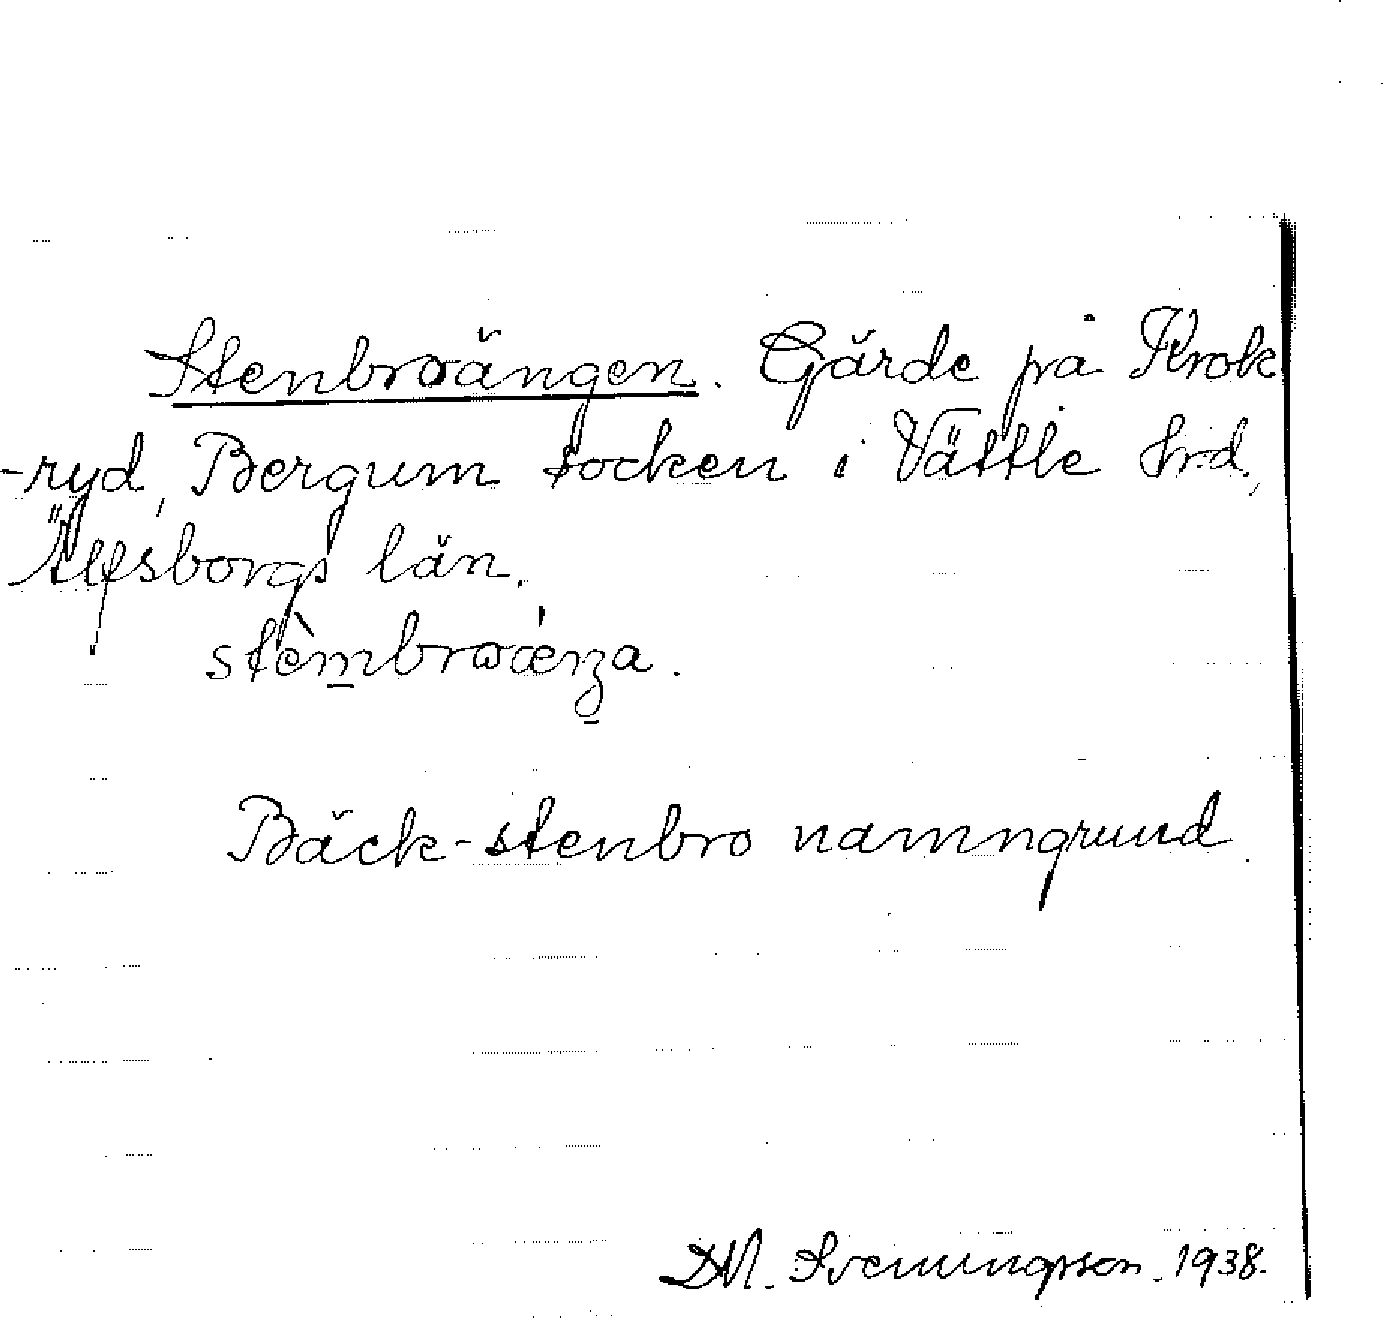 Stenbroängen. Gärde på Krok
-ryd, Bergum socken i Vättle hrd.,
Älfsborgs län.
Bäck-stenbro namngrund.
Svenungsson. 1938.